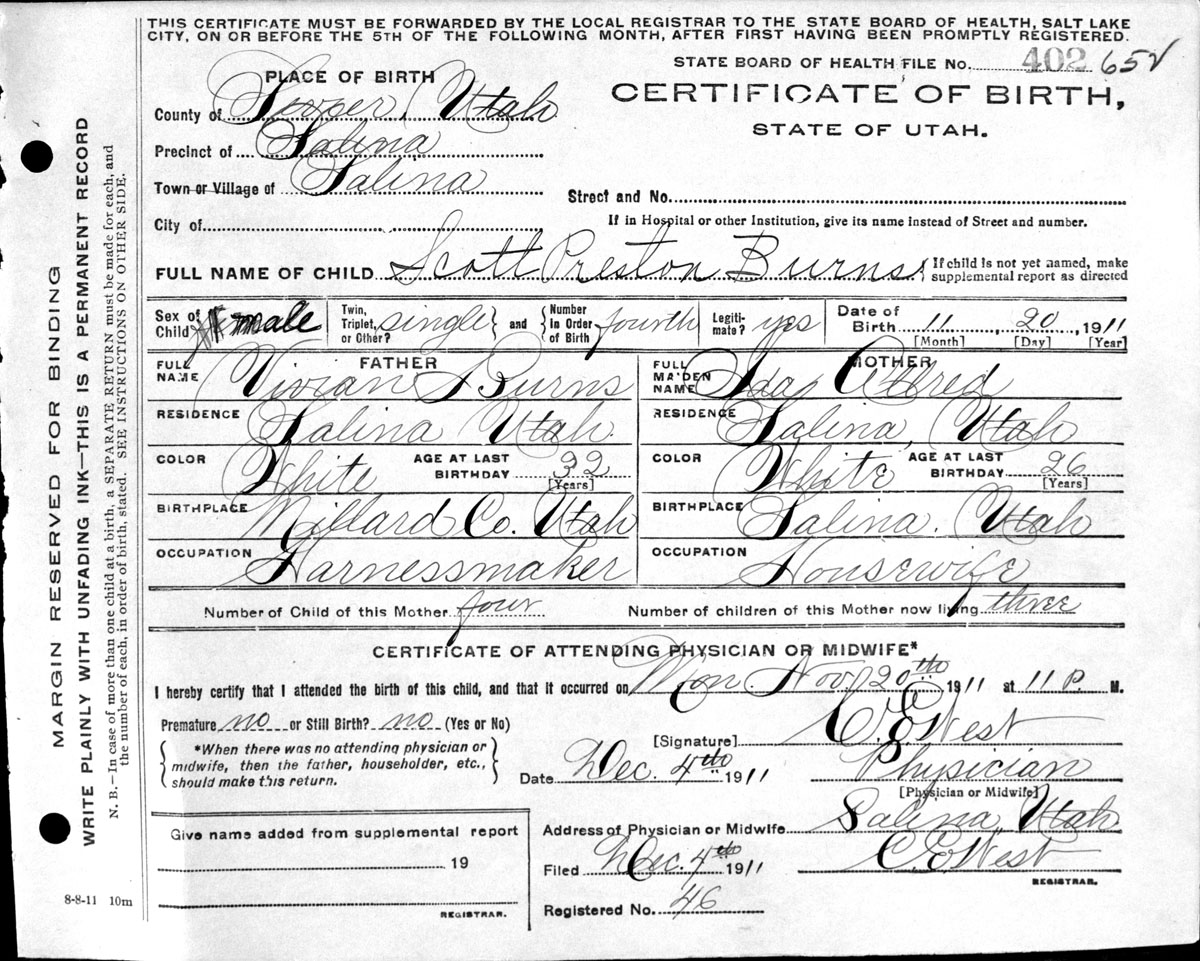 THIS CERTIFICATE MUST BE FORWARDED BY THE LOCAL REGISTRAR TO THE STATE BOARD OF HEALTH, SALT LAKE
CITY, ON OR BEFORE THE 5TH OF THE FOLLOWING MONTH, AFTER FIRST HAVING BEEN PROMPTLY REGISTERED.
STATE BOARD OF HEALTH FILE No. 402 65
PLACE OF BIRTH
CERTIFICATE OF BIRTH,
STATE OF UTAH.
County of Sevier, Utah
Precinct of Salina
Town or Village of Salina
Street and No.
City of
If in Hospital or other Institution, give its name instead of Street and number.
FULL NAME OF CHILD Scott Preston Burns
If child is not yet named, make
supplemental report as directed
Sex of Child male
Twin, Triplet, or Other? single and Number In Order of Birth fourth
Legiti-mate? yes
Date of Birth 11, 20, 1911
[Month] [Day] [Year]
FATHER
FULL NAME Vivian Burns
RESIDENCE Salina Utah.
COLOR White AGE AT LAST BIRTHDAY 32 [Years]
BIRTHPLACE Millard Co. Utah
OCCUPATION Harnessmaker
MOTHER
FULL MAIDEN NAME Ida Allred
RESIDENCE Salina, Utah
COLOR White AGE AT LAST BIRTHDAY 26 [Years]
BIRTHPLACE Salina. Utah
OCCUPATION Housewife
Number of Child of this Mother four Number of children of this Mother now living three
CERTIFICATE OF ATTENDING PHYSICIAN OR MIDWIFE*
I hereby certify that I attended the birth of this child, and that it occurred on Mon. Nov. 20th 1911 at 11 P. M.
Premature no or Still Birth? no (Yes or No)
*When there was no attending physician or
midwife, then the father, householder, etc.,
should make this return.
[Signature] C. E. West
Date Dec. 4th 1911
Physician
[Physician or Midwife]
Address of Physician or Midwife Salina, Utah
Give name added from supplemental report
19
REGISTRAR.
Filed Dec. 4th 1911 C. E. West
REGISTRAR.
Registered No. 46
8-8-11 10m
MARGIN RESERVED FOR BINDING
WRITE PLAINLY WITH UNFADING INK—THIS IS A PERMANENT RECORD
N. B.—In case of more than one child at a birth, a SEPARATE RETURN must be made for each, and
the number of each, in order of birth, stated. SEE INSTRUCTIONS ON OTHER SIDE.